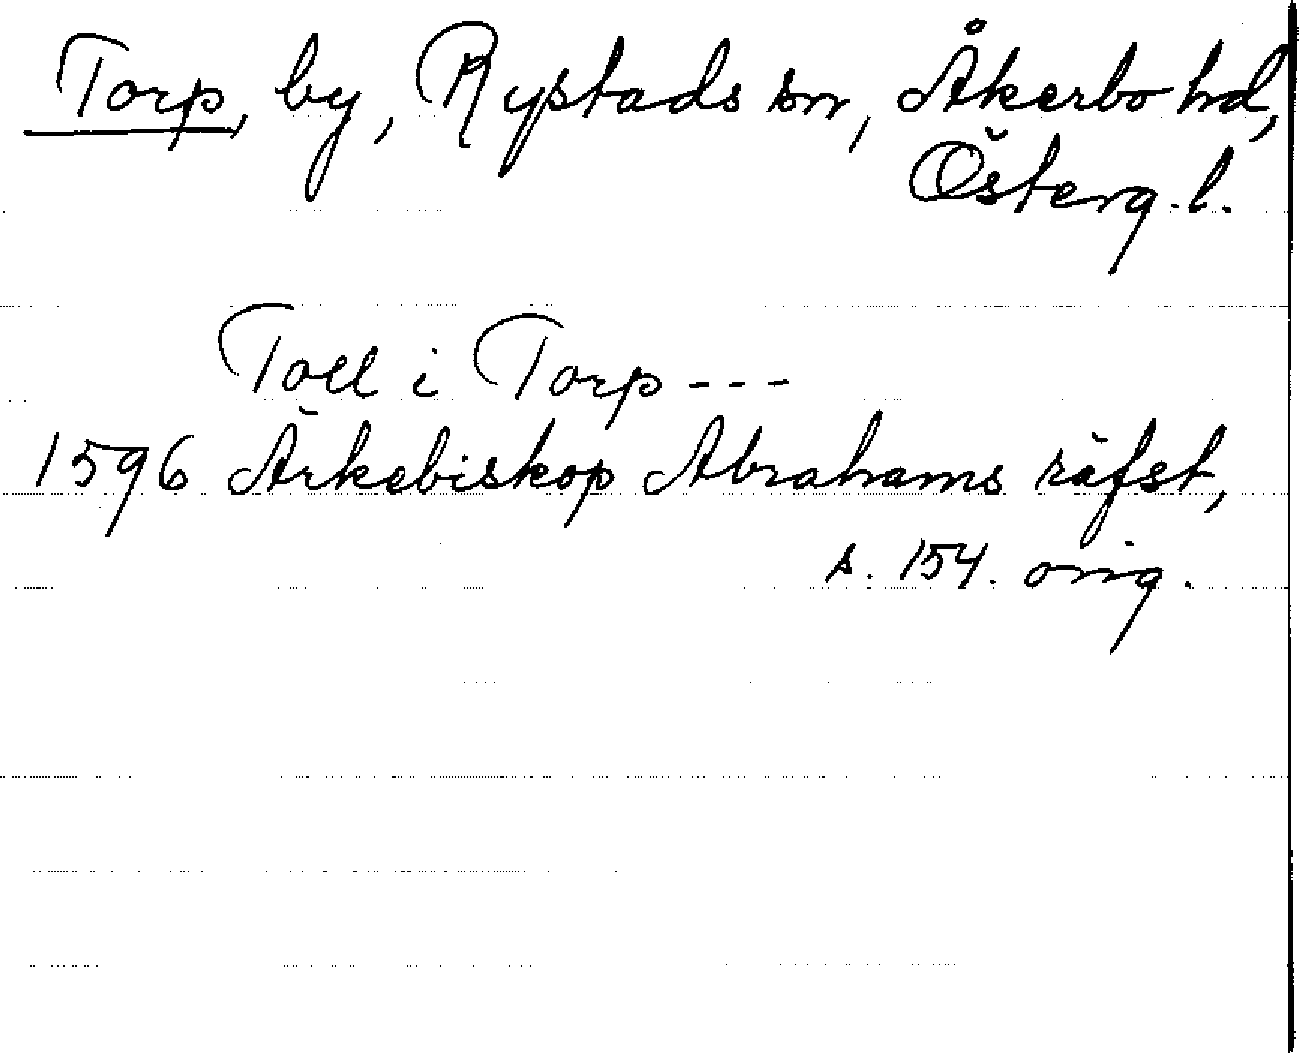 Torp, by, Rystads sn, Åkerbo hd,
Österg.l.
Toll i Torp - - -
1596 Ärkebiskop Abrahams räfst,
s. 154. orig.